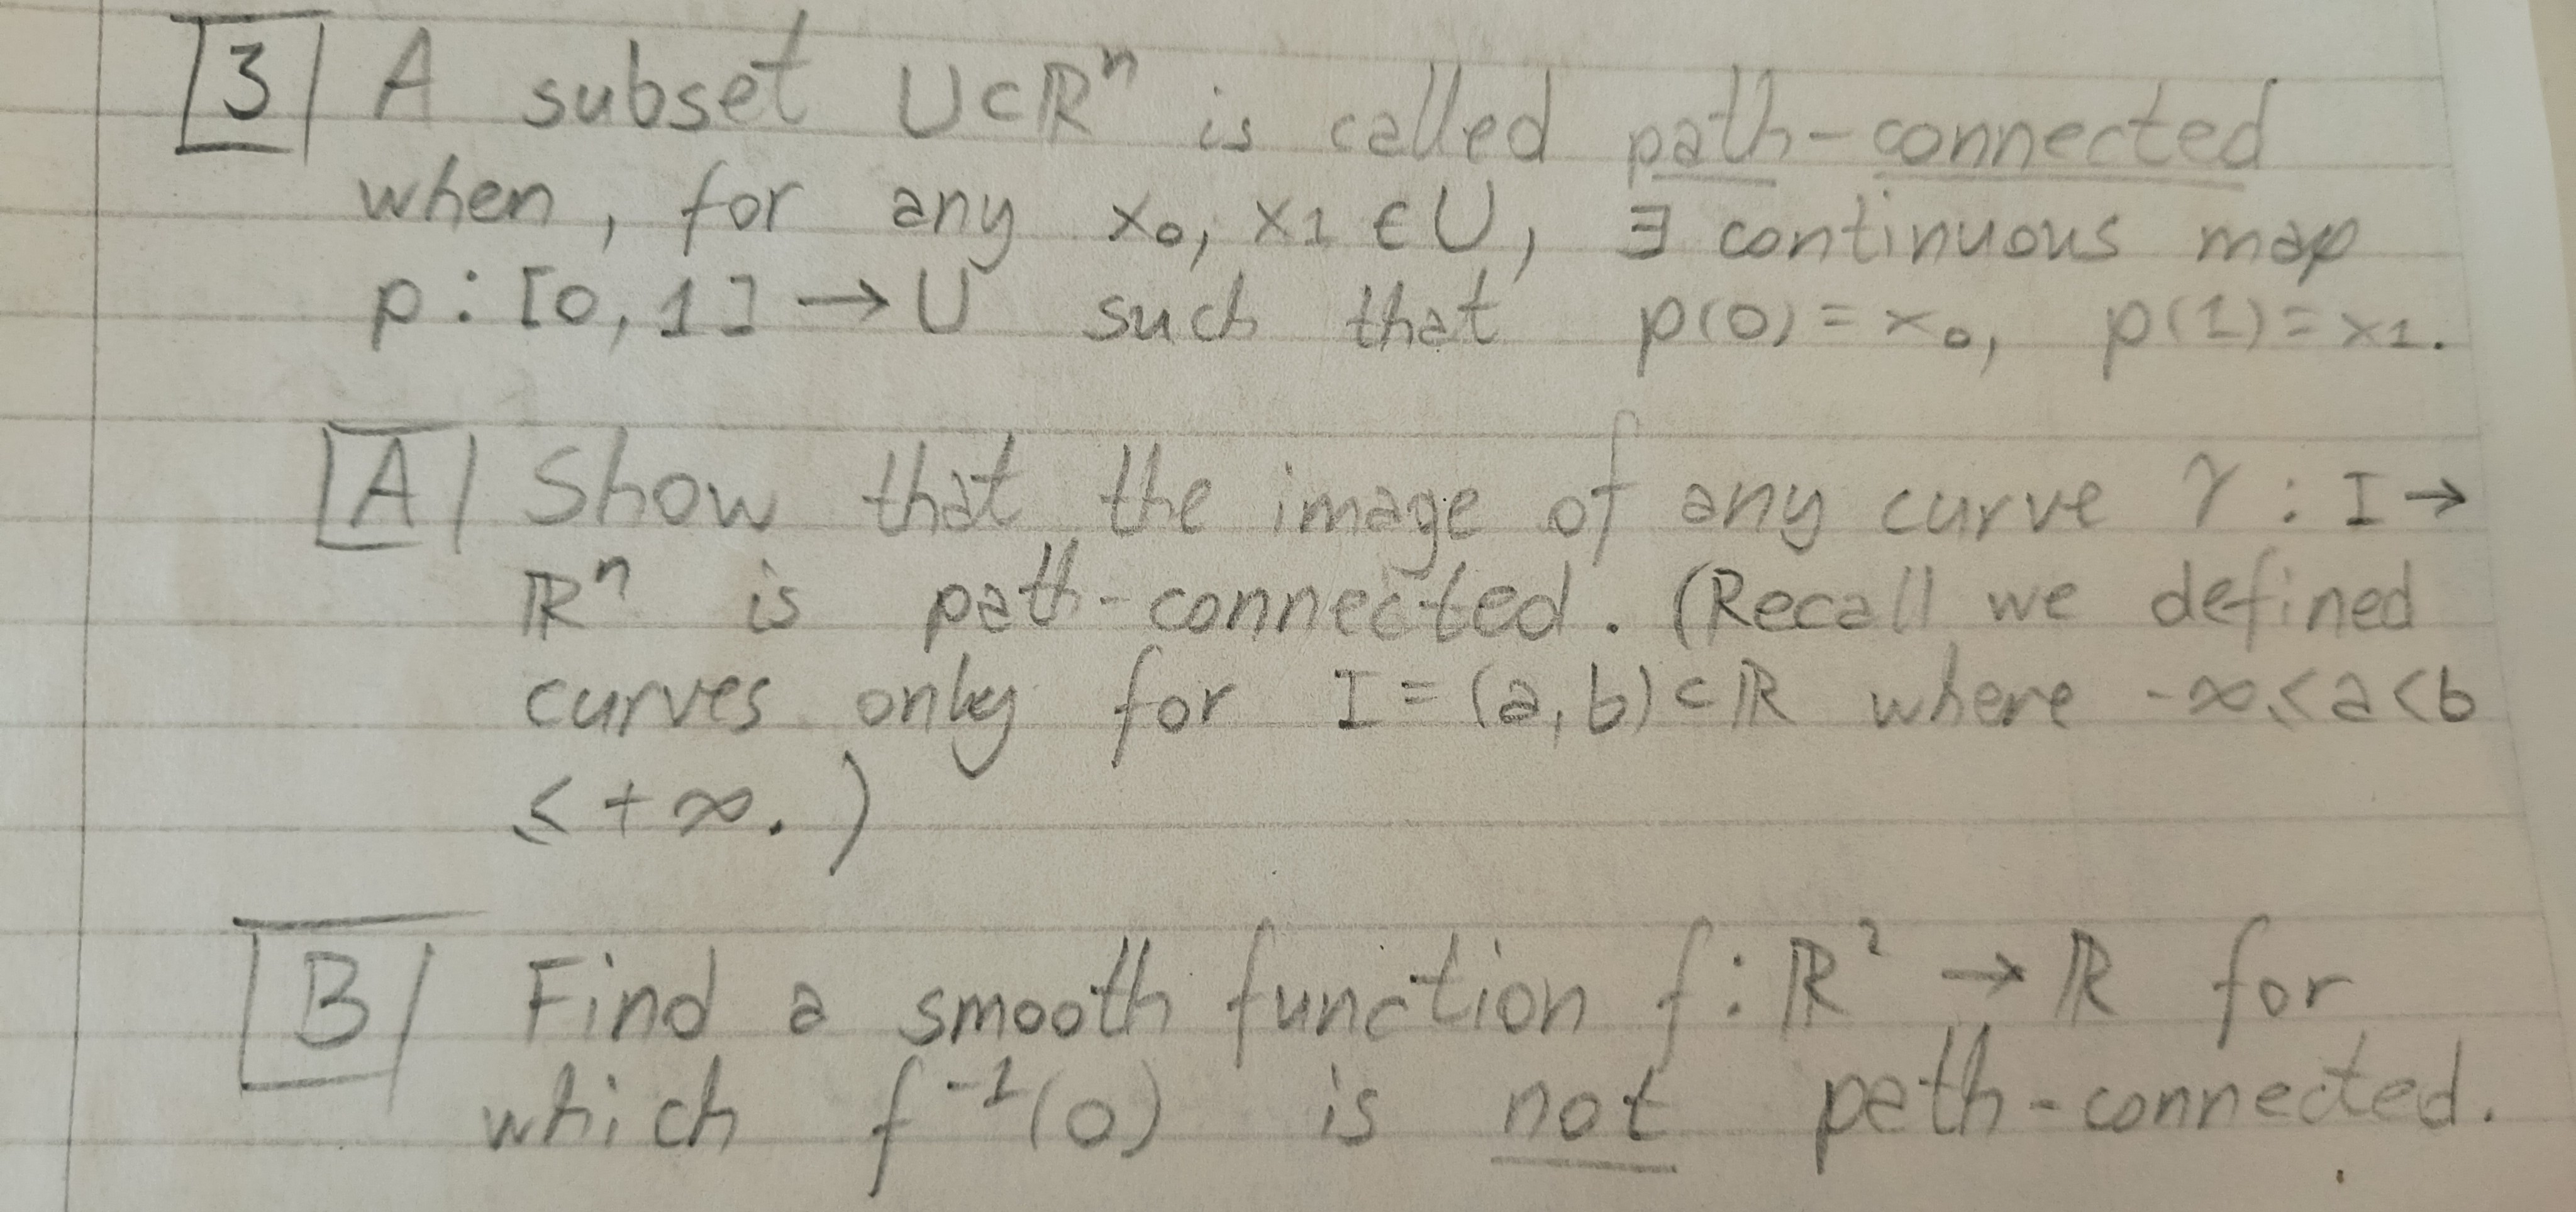 3 A subset U⊂ℝⁿ is called path-connected
when, for any x₀, x₁ ∈ U, ∃ continuous map
p : [0, 1] → U such that p(0) = x₀, p(1) = x₁.
A Show that the image of any curve γ : I →
ℝⁿ is path-connected. (Recall we defined
curves only for I = (a, b) ⊂ ℝ where -∞ ≤ a < b
≤ +∞.)
B Find a smooth function f : ℝ² → ℝ for
which f⁻¹(0) is not path-connected.